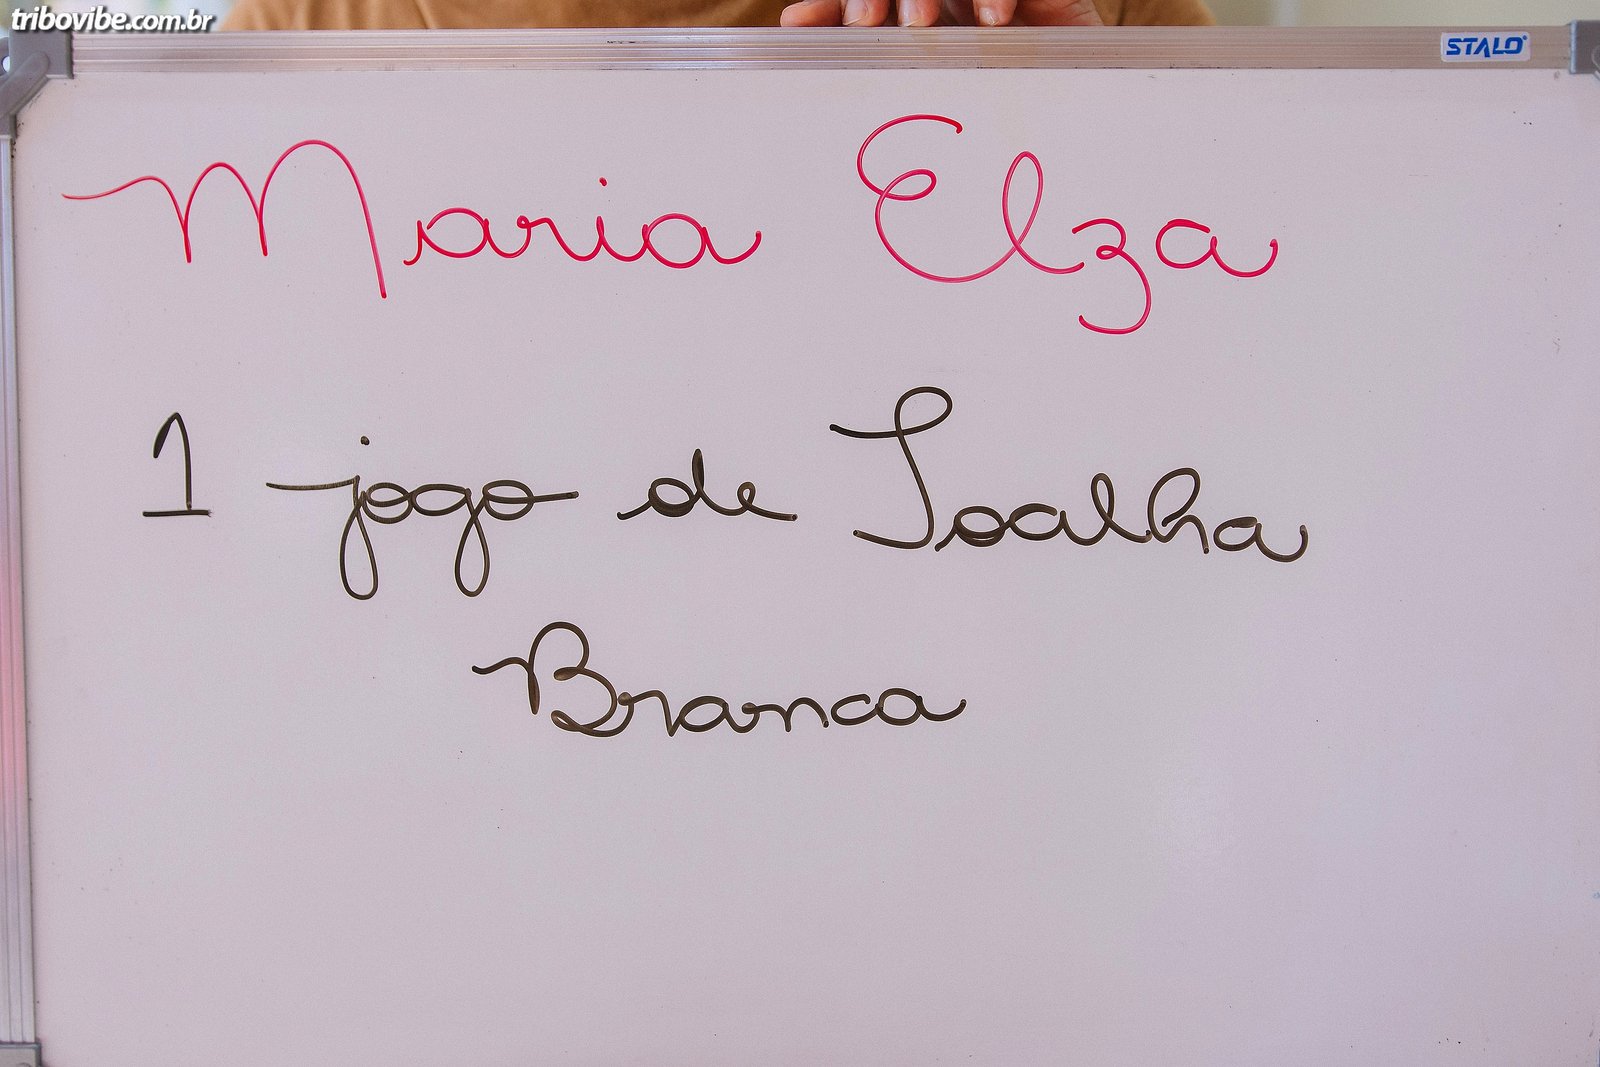 tribovibe.com.br
STALO
Maria Elza
1 jogo de Toalha
Branca